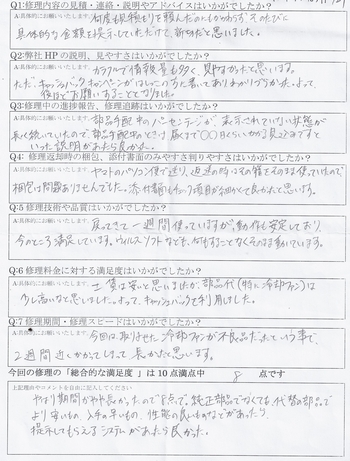 Q:1修理内容の見積・連絡・説明やアドバイスはいかがでしたか?
A:具体的にお願いいたします。何度も見積もりを頼んだにもかかわらず そのたびに
具体的な金額を提示していただけて、親切だと思いました。
Q:2弊社HPの説明、見やすさはいかがでしたか?
A:具体的にお願いいたします。カラフルで情報量も多く、見やすかったと思います。
ただ、キャッシュバックキャンペーンが
Q:3修理中の進捗報告、修理追跡はいかがでしたか?
A:具体的にお願いいたします。部品手配中のパーセンテージが表示されていない状態が
長く続いていたので 部品手配中のときは 届くまで〇〇日くらいかかる見込みですと
いった説明があったら良かった。
Q:4 修理返却時の梱包、添付書面のみやすさ判りやすさはいかがでしたか?
A:具体的にお願いいたします。ヤマトのパソコン便で送り、返送の時もその箱をそのまま使っていたので
梱包は問題ありませんでした。添付書類もチェック項目が細かくて良かったと思います。
Q:5 修理技術や品質はいかがでしたか?
A:具体的にお願いいたします。戻ってきて一週間使っていますが、動作も安定しており
今のところ満足しています。ウィルスソフトなども、何もすることなくそのまま動いています。
Q:6 修理料金に対する満足度はいかがでしたか?
A:具体的にお願いいたします。工賃は安いと思いましたが、部品代(特に冷却ファン)は
少し高いなと思いました。よって、キャッシュバックを利用しました。
Q:7 修理期間・修理スピードはいかがでしたか?
A:具体的にお願いいたします。今回は取りよせた冷却ファンが不良品だったという事で、
2週間近くかかってしまって 長かったと思います。
今回の修理の「総合的な満足度 」は10点満点中 8 点です
上記理由やコメントを自由に記入してください
やはり期間がやや長かったので8点で。純正部品でなくても、代替の部品で
より安いもの、入手の早いもの、性能の良いものなどがあったら、
提示してもらえるシステムがあったら良かった。